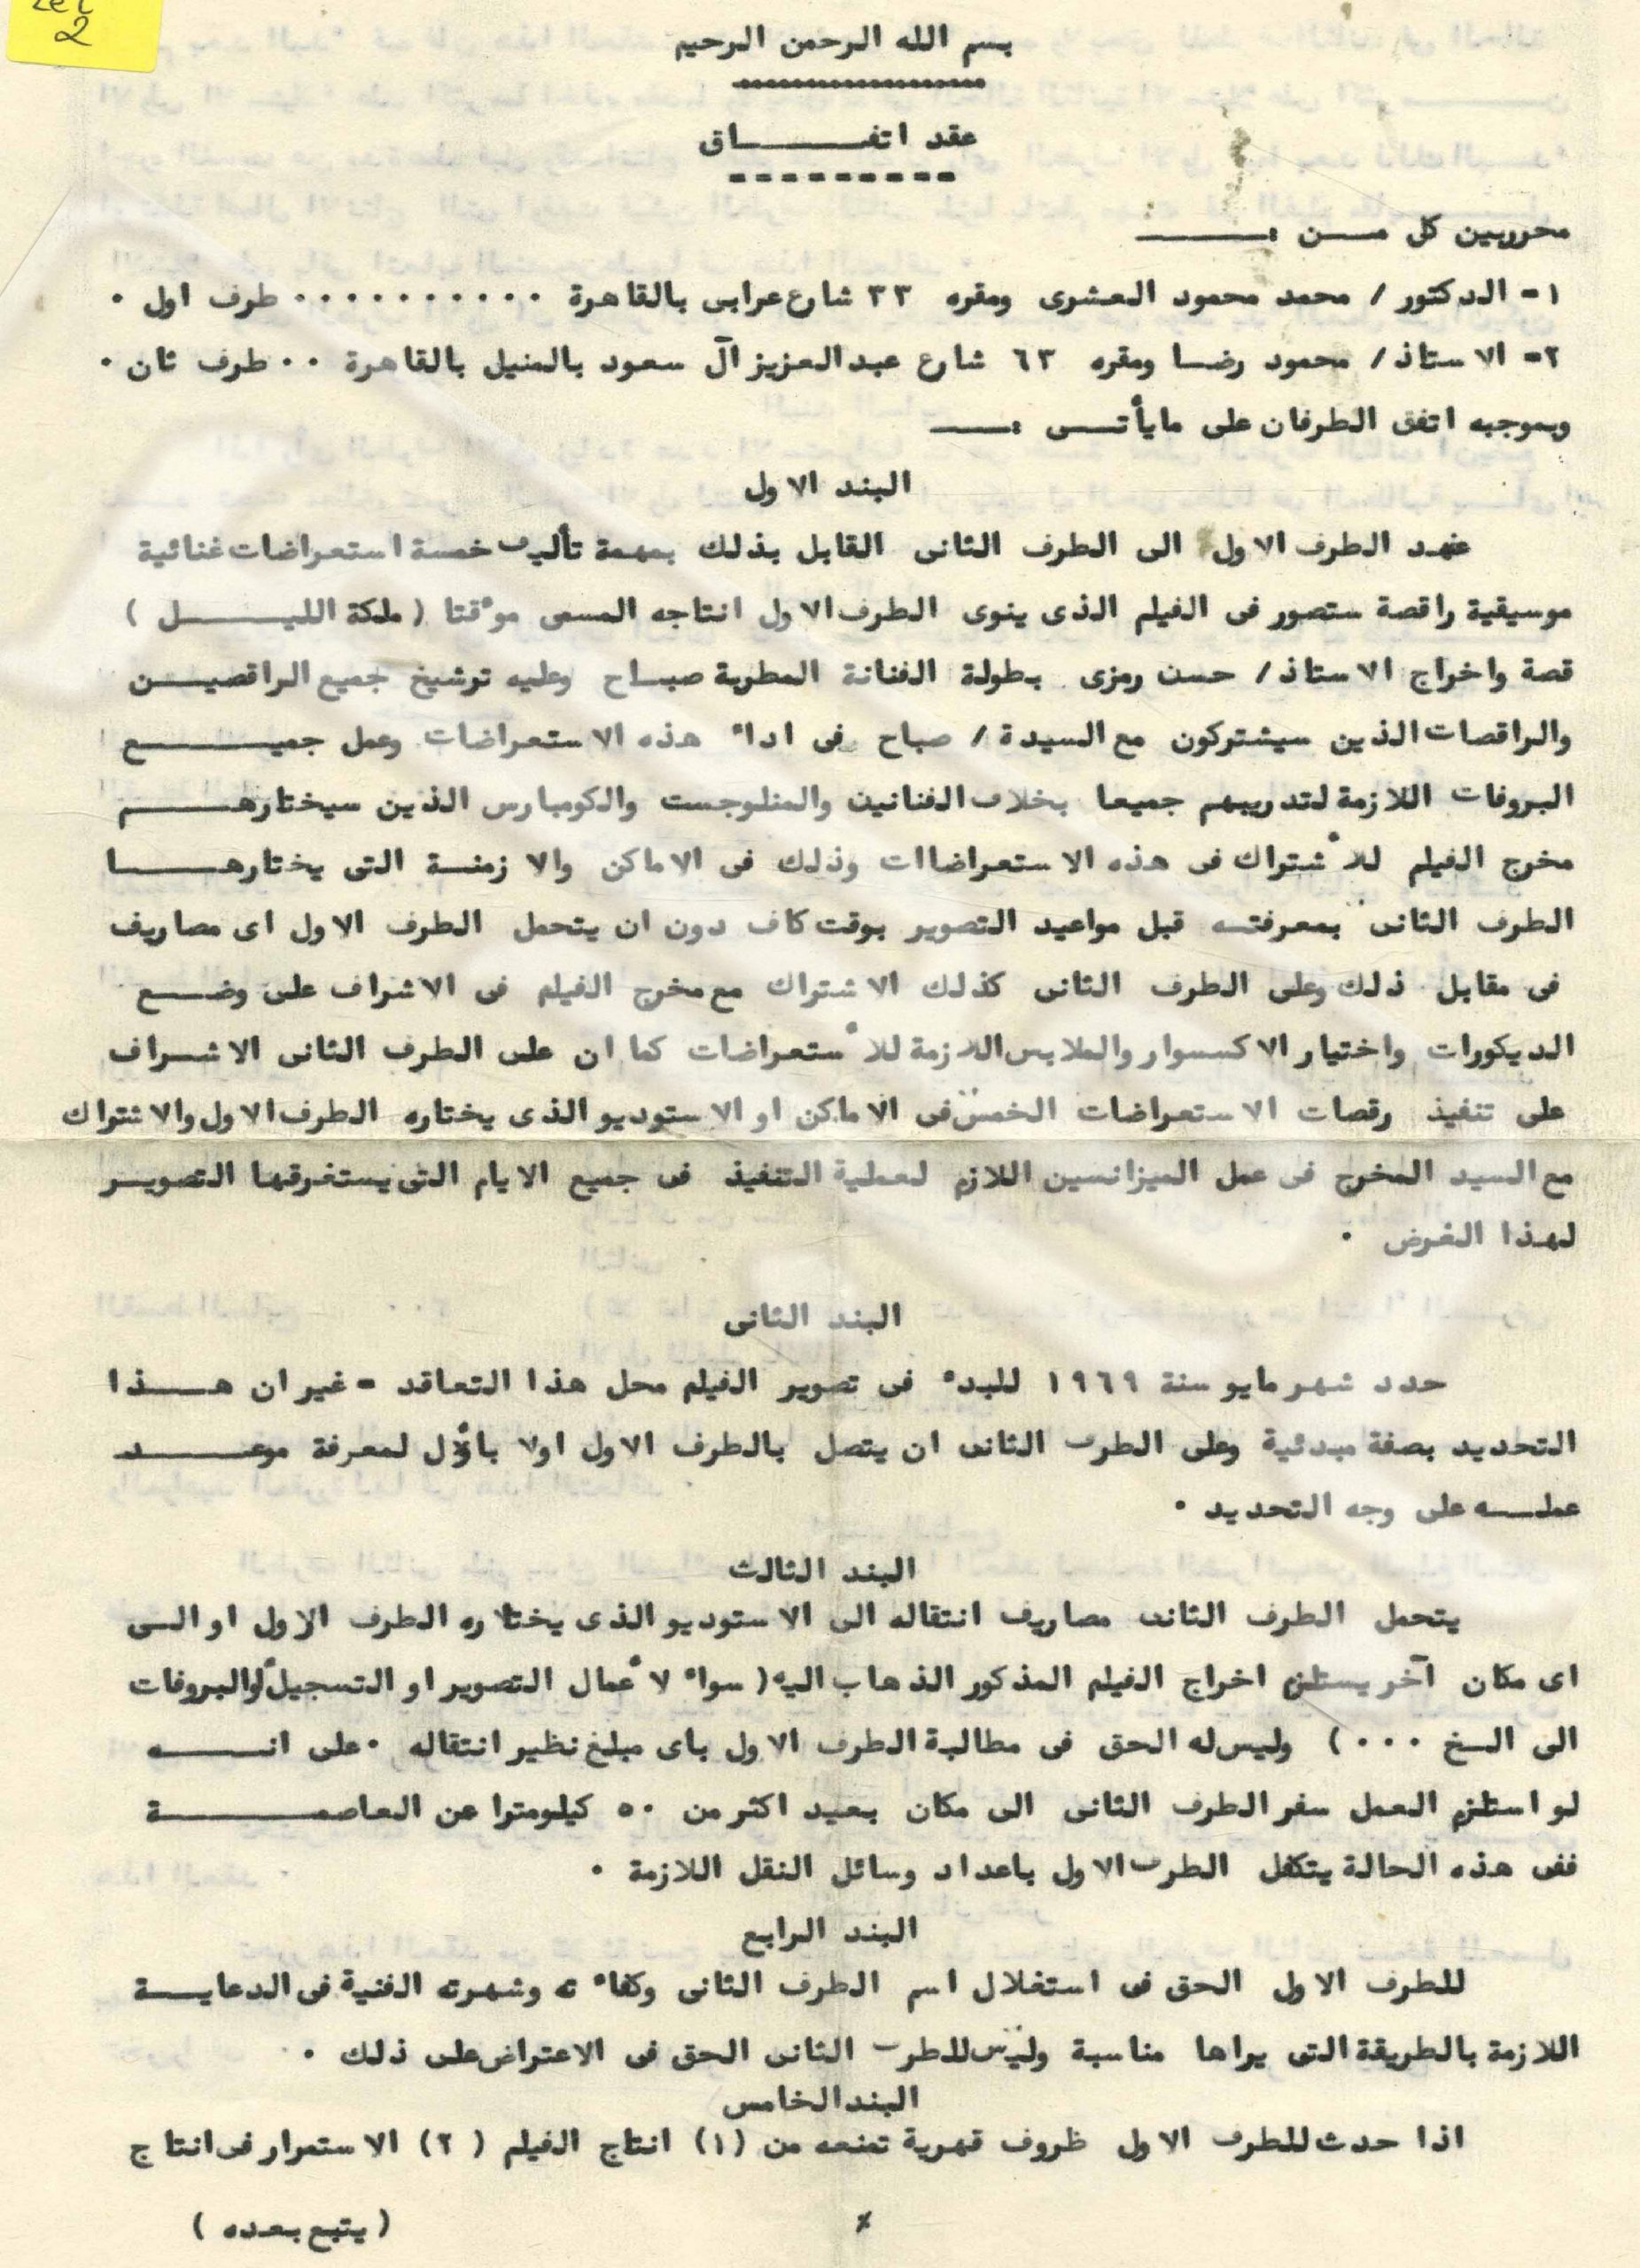 Let
2
بسم الله الرحمن الرحيم
عقد اتفـــاق
محرربين كل مـــن :ــــــ
١- الدكتور / محمد محمود العشرى ومقره ٣٣ شارع عرابى بالقاهرة . . . . . . . . . . طرف اول .
٢- الاستاذ / محمود رضـا ومقره ٦٣ شارع عبد العزيز آل سعود بالمنيل بالقاهرة . . طرف ثان .
وبموجبه اتفق الطرفان على مايأتــى :ــــ
البند الاول
عهد الطرف الاول الى الطرف الثانى القابل بذلك بمهمة تأليف خمسة استعراضات غنائية
موسيقية راقصة ستصور فى الفيلم الذى ينوى الطرف الاول انتاجه المسمى موءقتا ( ملكة الليـــل )
قصة واخراج الاستاذ / حسن رمزى بطولة الفنانة المطربة صبـاح وعليه ترشيخ جميع الراقصيــن
والراقصات الذين سيشتركون مع السيدة / صباح فى اداء هذه الاستعراضات وعمل جميـــع
البروفات اللازمة لتدريبهم جميعا بخلاف الفنانين والمنلوجست والكومبارس الذين سيختارهـــم
مخرج الفيلم للأشتراك فى هذه الاستعراضاات وذلك فى الاماكن والازمنـة التى يختارهـــا
الطرف الثانى بمعرفتـه قبل مواعيد التصوير بوقت كاف دون ان يتحمل الطرف الاول اى مصاريف
فى مقابل ذلك وعلى الطرف الثانى كذلك الاشتراك مع مخرج الفيلم فى الاشراف على وضـــع
الديكورات واختيار الاكسسوار والملابس اللازمة للأستعراضات كما ان على الطرف الثانى الاشـراف
على تنفيذ رقصات الاستعراضات الخمس فى الاماكن او الاستوديو الذى يختاره الطرف الاول والاشتراك
مع السيد المخرج فى عمل الميزانسين اللازم لعملية التنفيذ فى جميع الايام التى يستغرقها التصويـر
لهذا الغرض .
البند الثانى
حدد شهر مايو سنة ١٩٦٩ للبدء فى تصوير الفيلم محل هذا التعاقد - غير ان هـــذا
التحديد بصفة مبدئية وعلى الطرف الثانى ان يتصل بالطرف الاول اولا بأول لمعرفة موعـــد
عملــه على وجه التحديد .
البند الثالث
يتحمل الطرف الثانى مصاريف انتقاله الى الاستوديو الذى يختاره الطرف الاول او الـى
اى مكان آخر يستلزم اخراج الفيلم المذكور الذهاب اليه ( سواء لأعمال التصوير او التسجيل أوالبروفات
الى الـخ . . . ) وليس له الحق فى مطالبة الطرف الاول باى مبلغ نظير انتقاله . على انــــه
لو استلزم العمل سفر الطرف الثانى الى مكان بعيد اكثر من ٥٠ كيلومترا عن العاصمـــة
ففى هذه الحالة يتكفل الطرف الاول باعداد وسائل النقل اللازمة .
البند الرابع
للطرف الاول الحق فى استغلال اسم الطرف الثانى وكفاءته وشهرته الفنية فى الدعايــة
اللازمة بالطريقة التى يراها مناسبة وليس للطرف الثانى الحق فى الاعتراض على ذلك .
البند الخامس
اذا حدث للطرف الاول ظروف قهرية تمنعه من (١) انتاج الفيلم ( ٢) الاستمرار فى انتاج
( يتبع بعده )